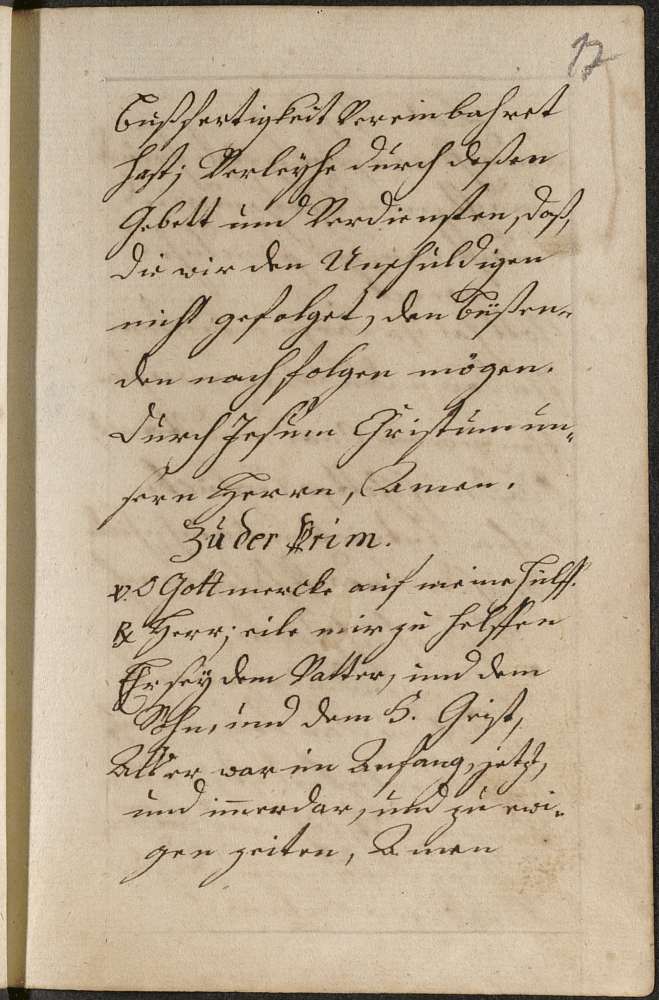 17
bußfertigkeit Vereinbahret
hast; Verleyhe durch deßen
Gebett und Verdiensten, daß,
die wir den Unschuldigen
nicht gefolget, den büßen-
den nachfolgen mögen.
durch Jesum Christum un-
sern Herrn, Amen.
Zu der Prim.
v. O Gott mercke auf meine hülff.
℟ Herr; eile mir zu helffen
Ehr sey dem Vatter, und dem
Sohn, und dem H. Geist,
Alß er war im Anfang, jetzt,
und im̄erdar, und zu ewi-
gen zeiten, Amen